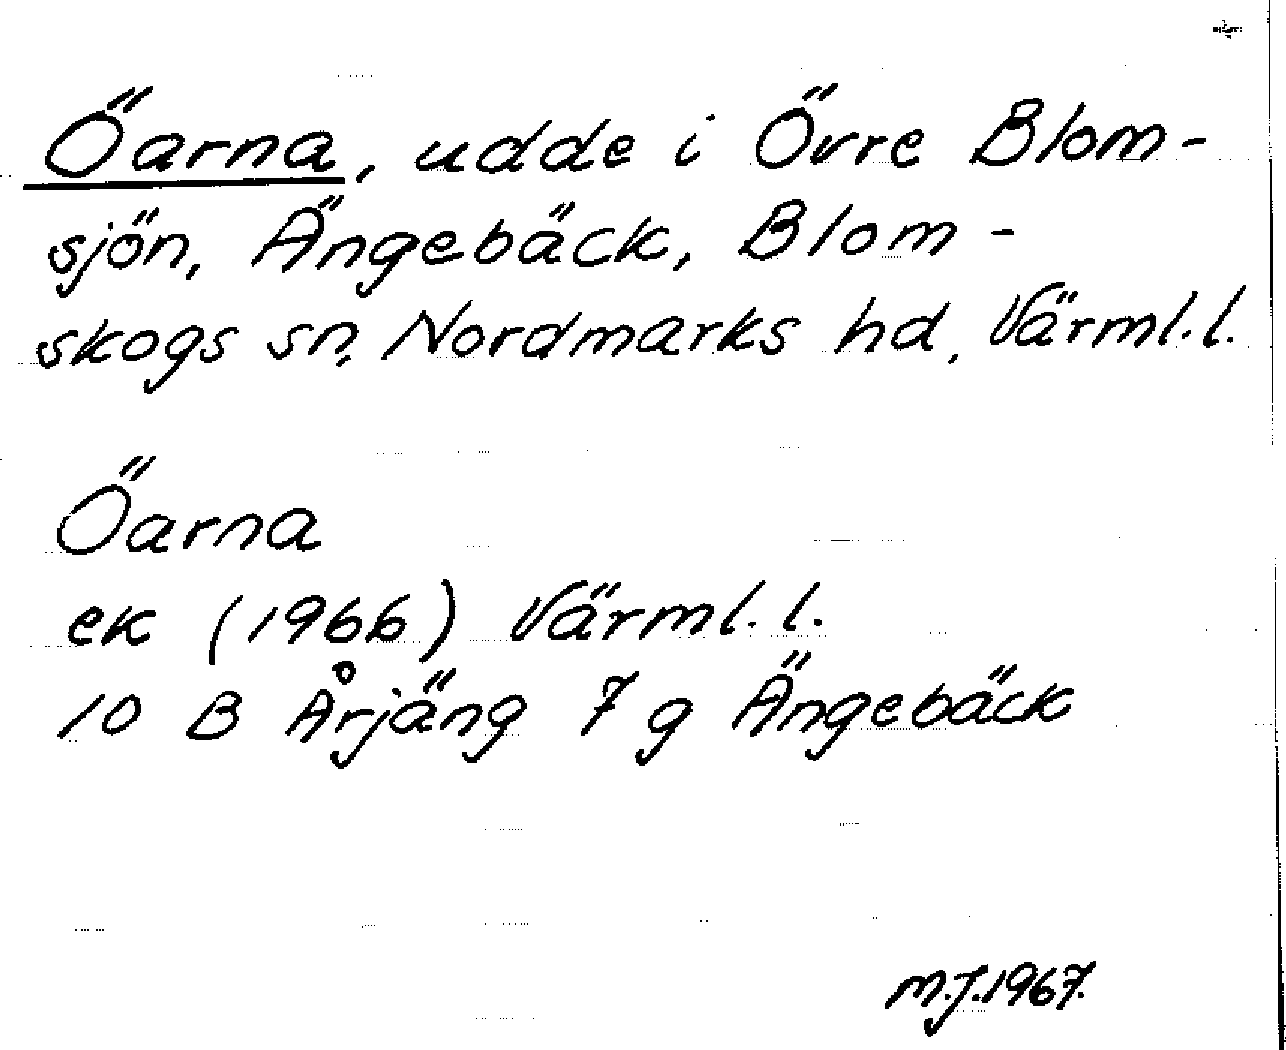 Öarna, udde i Övre Blom-
sjön, Ängebäck, Blom-
skogs sn, Nordmarks hd, Värml.l.
Öarna
ek (1966) Värml.l.
10 B Årjäng 7 g Ängebäck
M.J.1967.